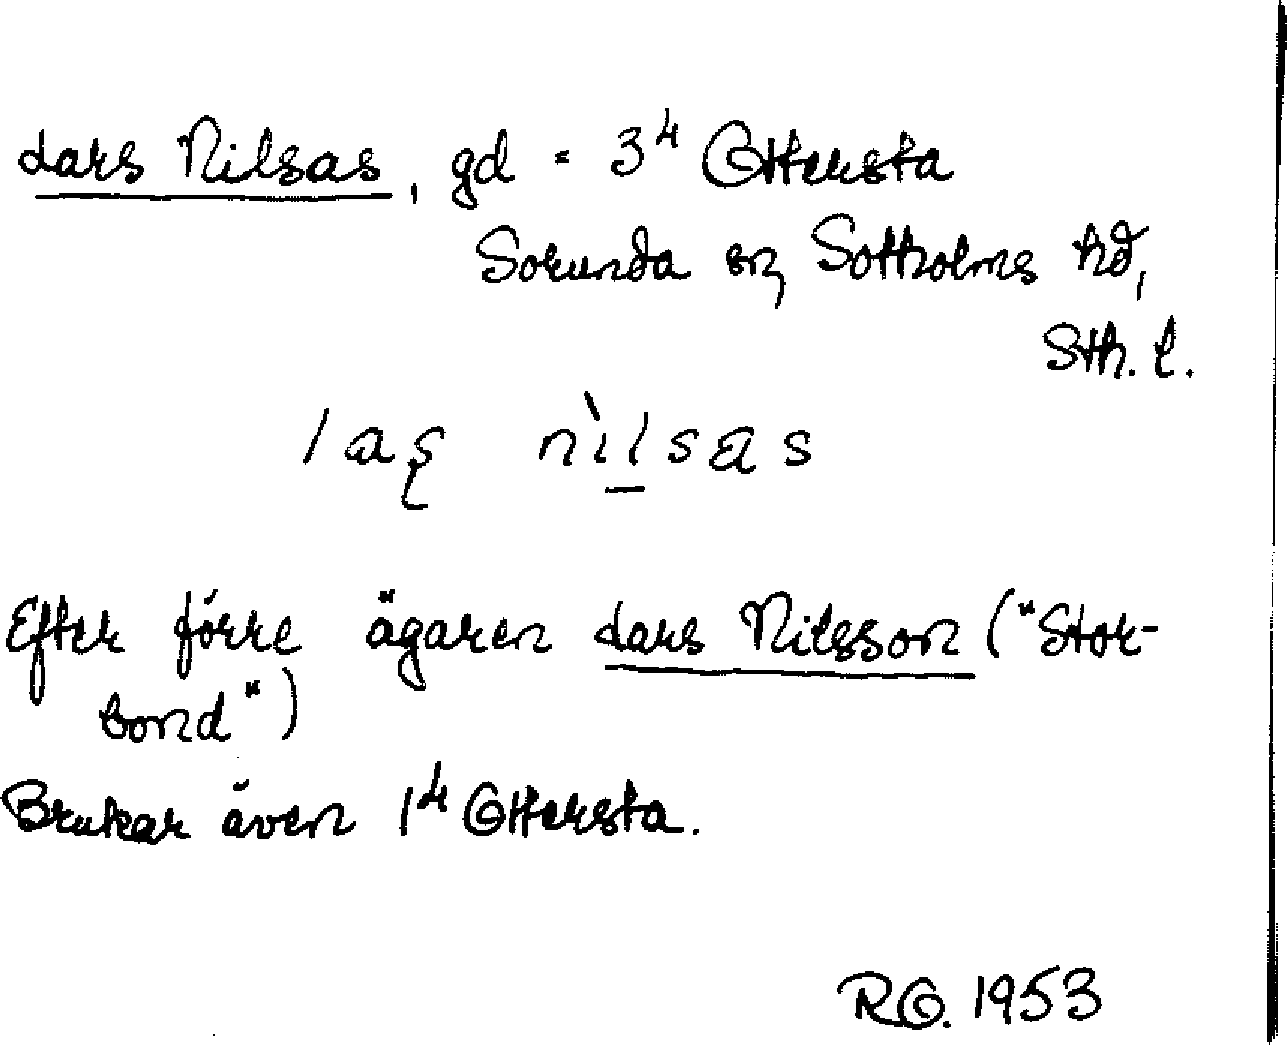 Lars Nilsas, gd = 3⁴ Ottersta
Sorunda sn, Sotholms hd,
Sth. l.
laʂ nìlsas
Efter förre ägaren Lars Nilsson ("Stor-
bond")
Brukar även 1⁴ Ottersta.
RO. 1953